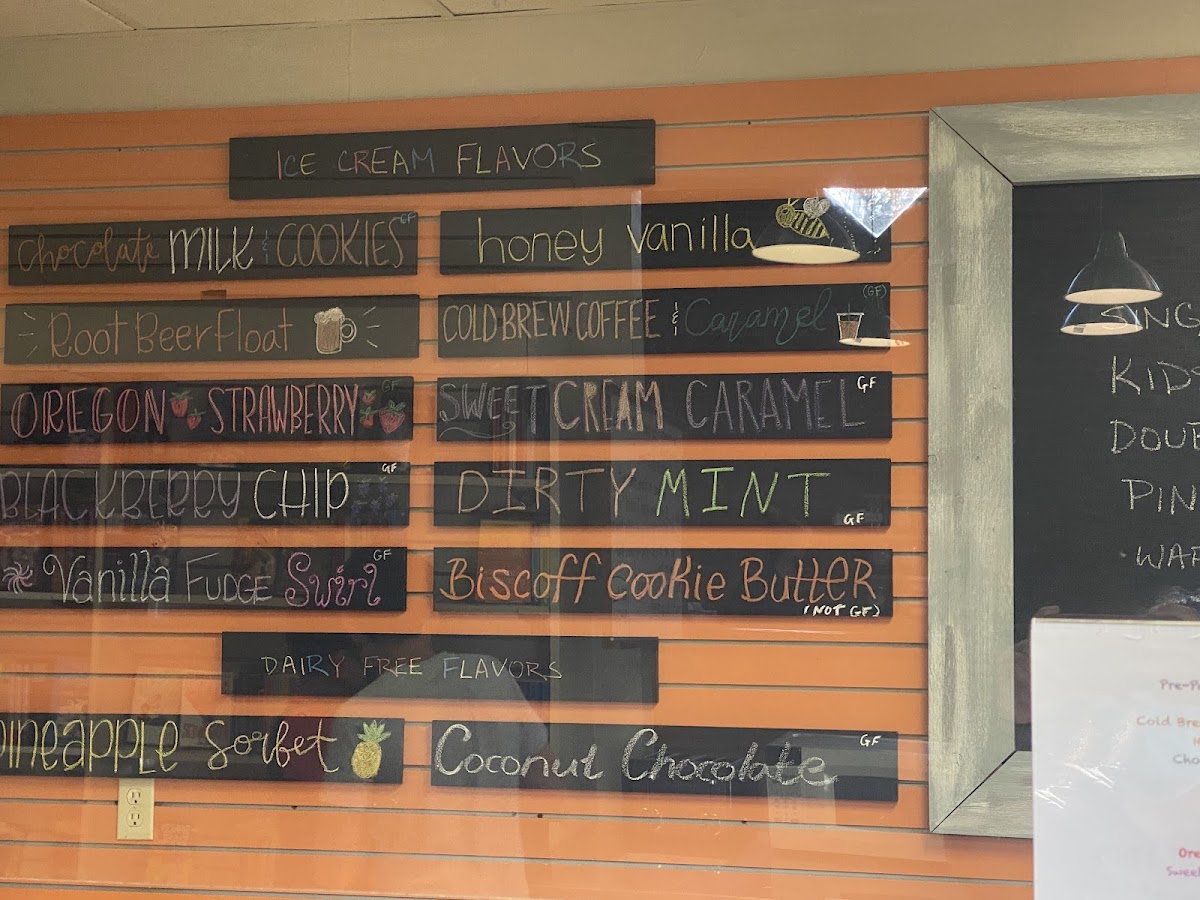 ICE CREAM FLAVORS
chocolate MILK & COOKIES GF
honey vanilla
Root Beer Float
COLD BREW COFFEE & Caramel (GF)
OREGON STRAWBERRY GF
SWEET CREAM CARAMEL GF
BLACKBERRY CHIP GF
DIRTY MINT GF
Vanilla FUDGE Swirl GF
Biscoff Cookie Butter (NOT GF)
DAIRY FREE FLAVORS
pineapple Sorbet
Coconut Chocolate GF
SING
KIDS
DOUB
PIN
WAF
Pre-P
Cold Bre
H
Cho
Ore
Sweet